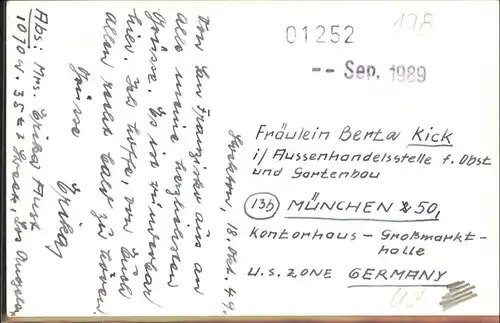 01252
198
-- Sep. 1989
Stockton, 18. Okt. 49.
Von San Franzisko aus an
alle meine herzlichsten
Grüsse. Es ist wunderbar
hier. Ich hoffe, von Euch
allen recht bald zu hören.
Grüsse
Erika
Abs: Mrs. Erika
1070 W. 35th Street, Los Angeles
Fräulein Berta Kick
i/ Aussenhandelsstelle f. Obst
und Gartenbau
(13b) MÜNCHEN 50,
Kontorhaus – Großmarkt-
halle
U.S. ZONE GERMANY